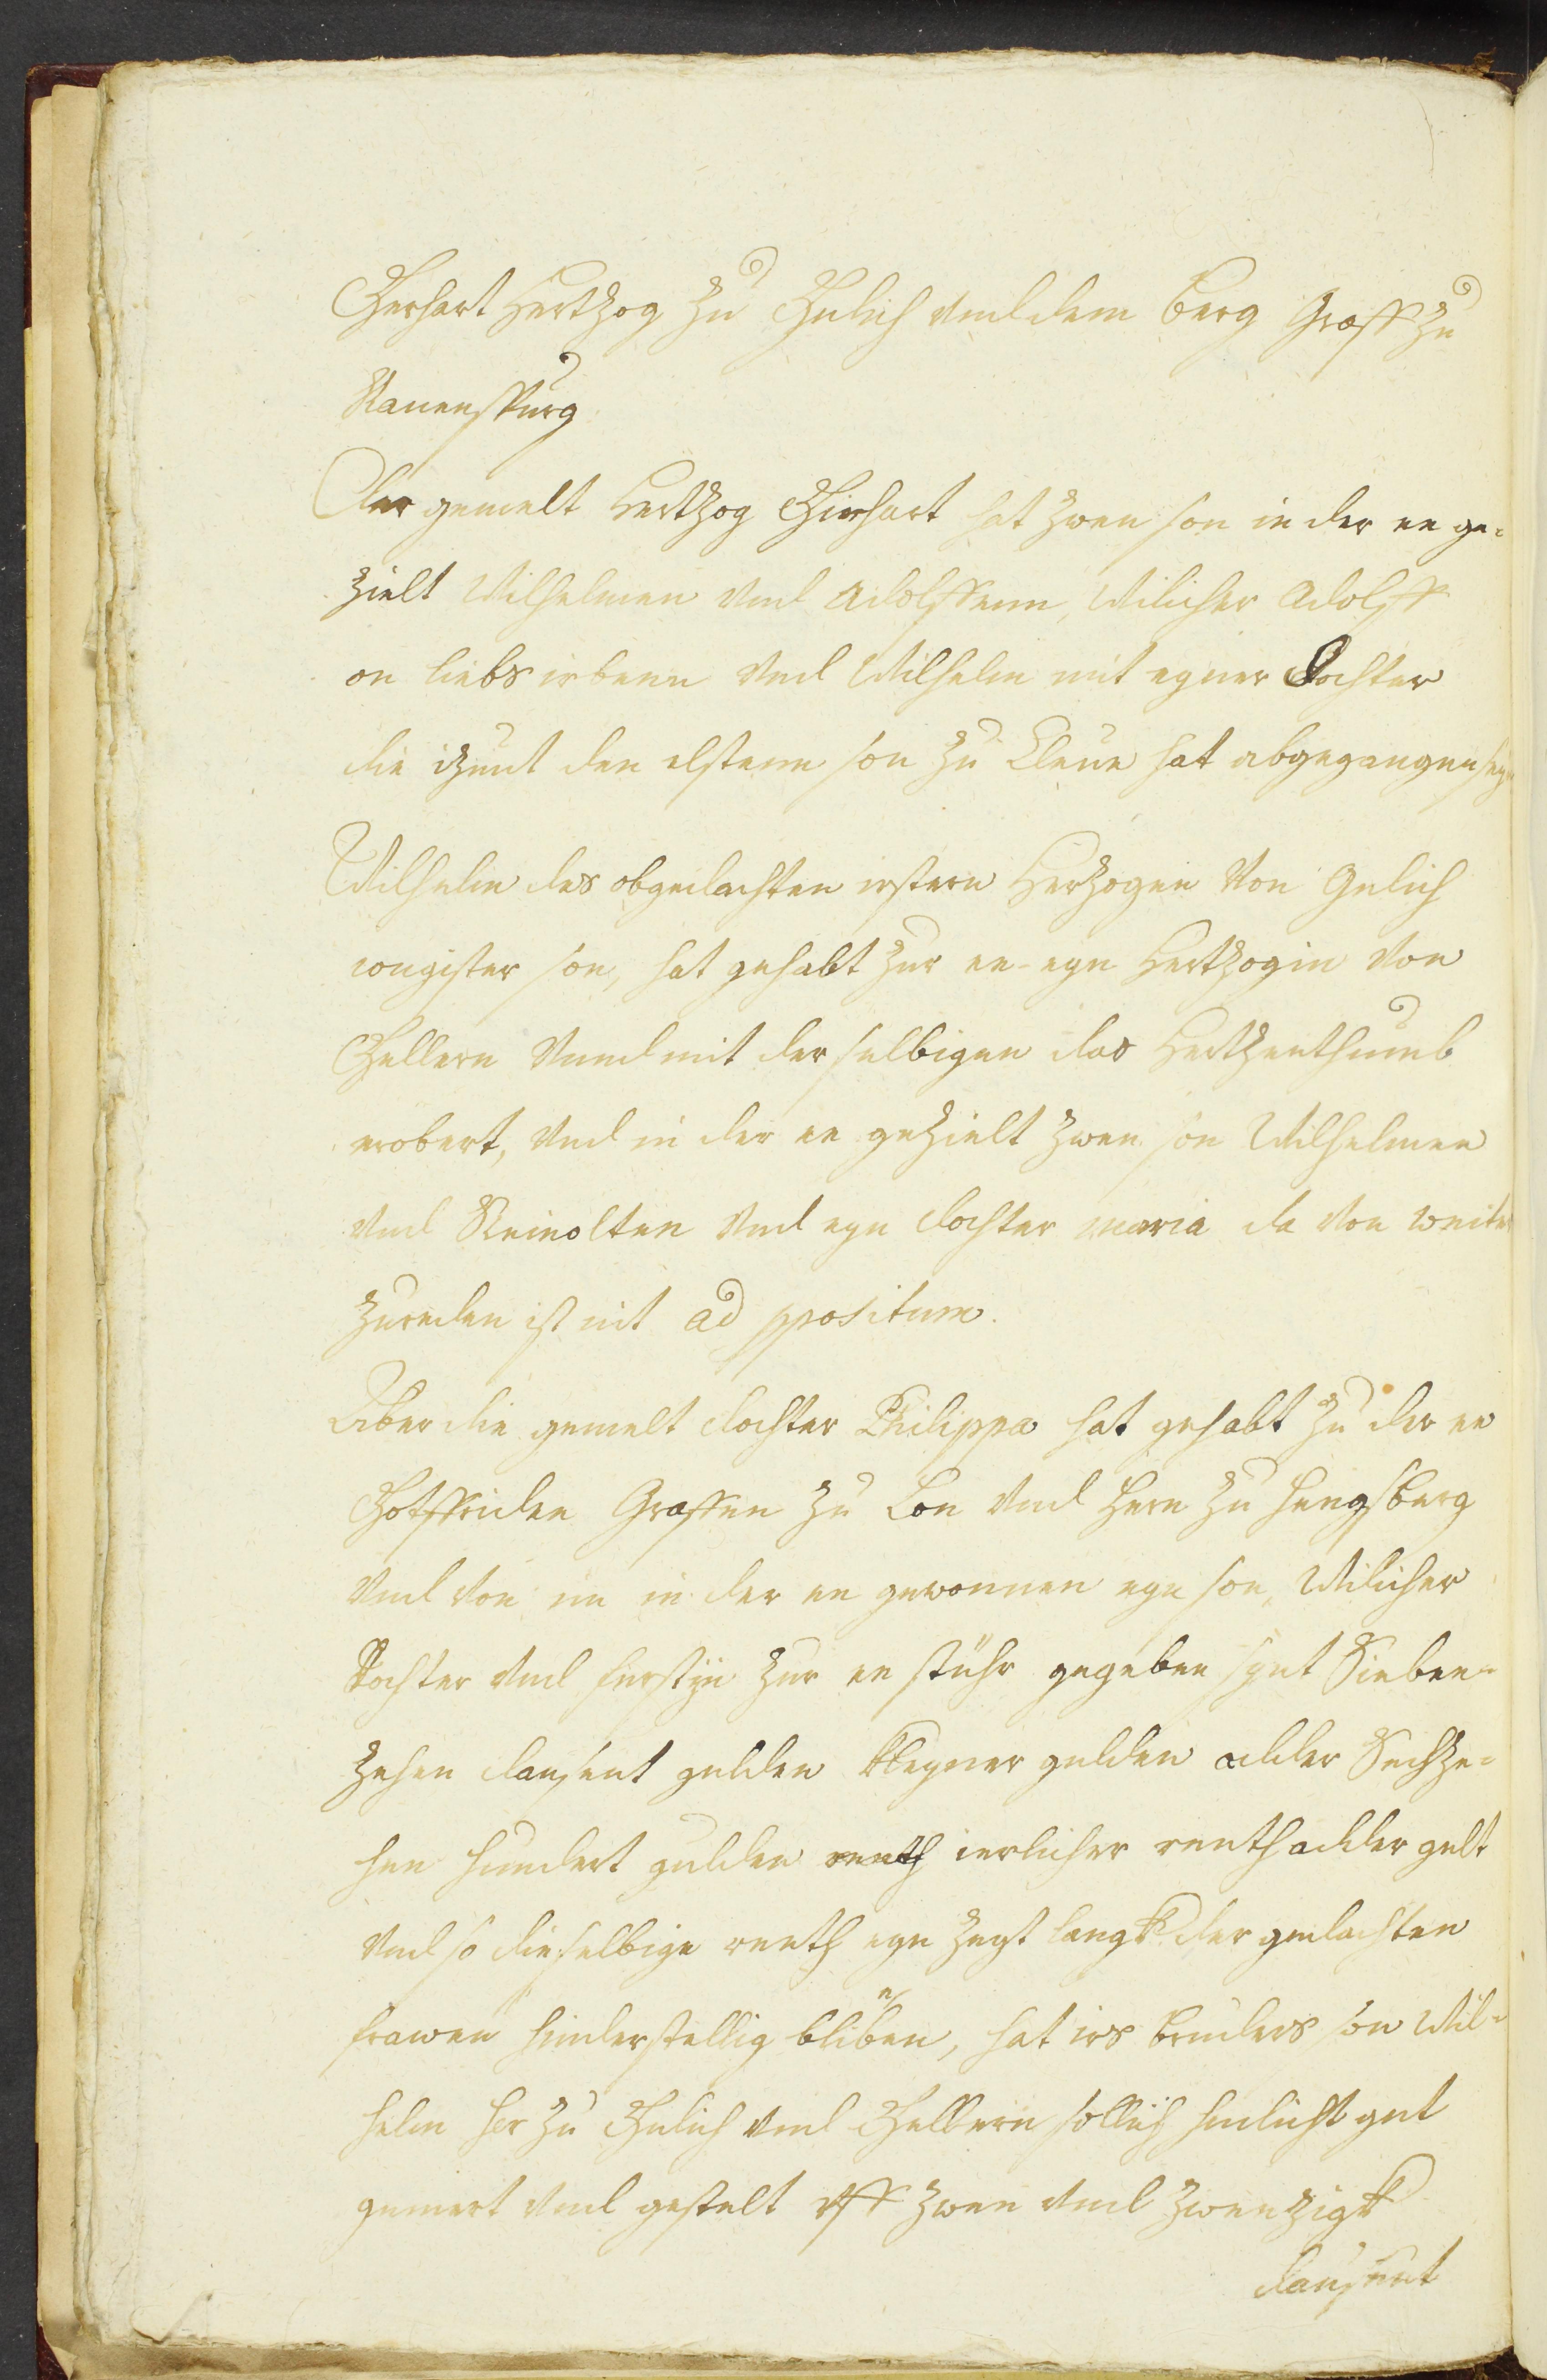 Gerhart Hertzog zu Gulich vnd dem berg Graff zu
Rauenspurg
Der gemelt Hertzog Girhart hat zwen son in der ee ge-
zielt Wilhelmen vnd Adolffenn, Wilicher Adolff
on liebs irbenn vnd Wilhelm mit eyner Dochter
die izunt den elstenn son zu Cleue hat abgegangen sey
Wilhelm des obgedachten erstenn Herzogen von Gulich
iongister son, hat gehabt zur ee eyn Hertzogin von
Gellern vnnd mit der selbigen das Hertzenthumb
erobert, vnd in der ee gezielt zwen son Wilhelmen
vnd Reinolten vnd eyn dochter maria da von weiter
zureden ist nit ad ppositum.
Aber die gemelt dochter Philippa hat gehabt zu der ee
Gotffriden Graffen zu Lon vnd Hern zu Hengsberg
vnd von im in der ee gewonnen eyn son, Wilicher
Tochter vnd furstin zur ee stuhr gegeben synt Sieben-
zehen dausent gulden kleyner gulden adder Sechze-
hen hundert gulden renth ierlicher renth adder gelt
vnd so dieselbige renth eyn Zeyt langk der gedachten
frawen hinderstellig bliben, hat irs bruders son Wil-
helm her zu Gulich vnd Gellern sollich hinlicht gut
gemert vnd gestelt vff zwen vnd zwenzigk
dausent